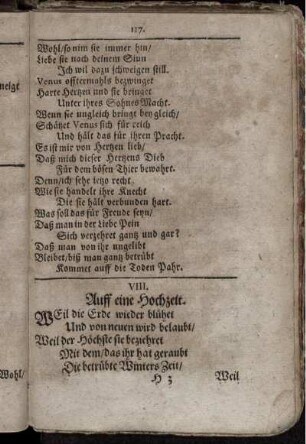 117.
Wohl/so nim sie immer hin/
Liebe sie nach deinem Sinn
Ich wil dazu schweigen still.
Venus offtermahls bezwinget
Harte Hertzen und sie bringet
Unter ihres Sohnes Macht.
Wenn sie ungleich bringt beygleich/
Schätzet Venus sich für reich
Und hält das für ihren Pracht.
Es ist mir von Hertzen lieb/
Daß mich dieser Hertzens Dieb
Für dem bösen Thier bewahrt.
Denn/ich sehe jetzo recht
Wie sie handelt ihre Knecht
Die sie hält verbunden hart.
Was soll das für Freude seyn/
Daß man in der Liebe Pein
Sich verzehret gantz und gar?
Daß man von ihr ungelibt
Bleibet/biß man gantz betrübt
Kommet auff die Toden Pahr.
VIII.
Auff eine Hochzeit.
WEil die Erde wieder blühet
Und von neuen wird belaubt/
Weil der Höchste sie beziehret
Mit dem/das ihr hat geraubt
Die betrübte Winters Zeit/
H 3 Weil
neigt
Wohl/